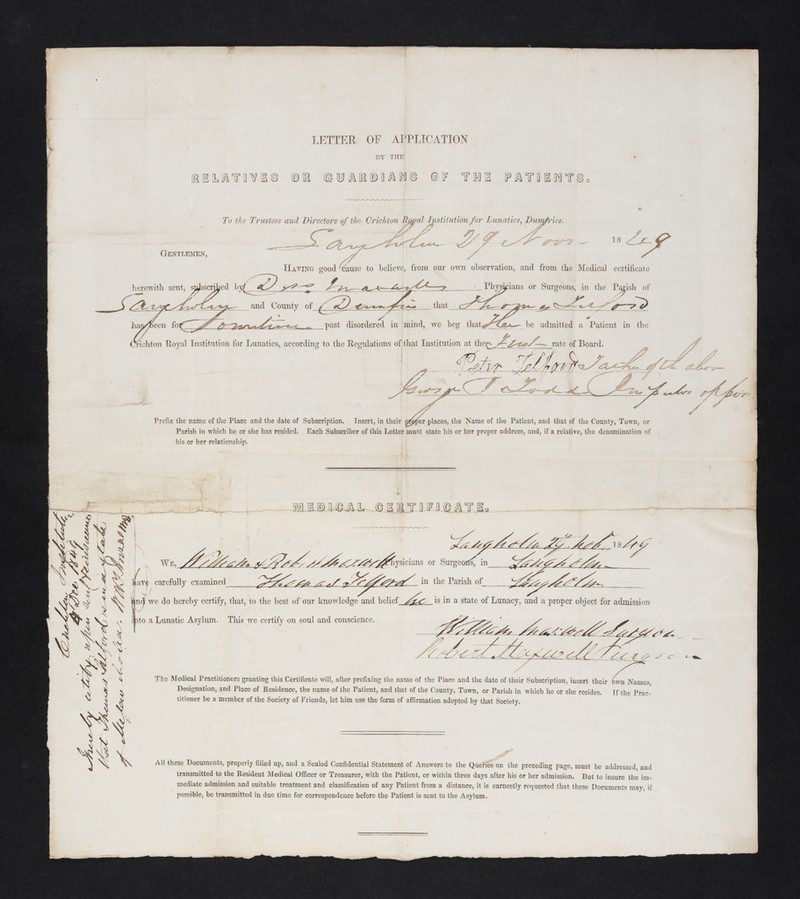 LETTER OF APPLICATION
BY THE
RELATIVES OR GUARDIANS OF THE PATIENTS.
To the Trustees and Directors of the Crichton Royal Institution for Lunatics, Dumfries.
Langholm 29 Novr 1849
GENTLEMEN,
HAVING good cause to believe, from our own observation, and from the Medical certificate
herewith sent, subscribed by Drs Maxwells Physicians or Surgeons, in the Parish of
Langholm and County of Dumfries that Thomas Telford
has been for past disordered in mind, we beg that he be admitted a Patient in the
Crichton Royal Institution for Lunatics, according to the Regulations of that Institution at the rate of Board.
Peter Telford Father of the above
George Todd Inspector of poor
Prefix the name of the Place and the date of Subscription. Insert, in their proper places, the Name of the Patient, and that of the County, Town, or
Parish in which he or she has resided. Each Subscriber of this Letter must state his or her proper address, and, if a relative, the denomination of
his or her relationship.
MEDICAL CERTIFICATE.
Langholm 1849
WE, William & Robert Maxwell Physicians or Surgeons, in Langholm
have carefully examined Thomas Telford in the Parish of Langholm
and we do hereby certify, that, to the best of our knowledge and belief he is in a state of Lunacy, and a proper object for admission
into a Lunatic Asylum. This we certify on soul and conscience.
William Maxwell Surgeon
Robert Maxwell Surgeon
The Medical Practitioners granting this Certificate will, after prefixing the name of the Place and the date of their Subscription, insert their own Names,
Designation, and Place of Residence, the name of the Patient, and that of the County, Town, or Parish in which he or she resides. If the Prac-
titioner be a member of the Society of Friends, let him use the form of affirmation adopted by that Society.
All these Documents, properly filled up, and a Sealed Confidential Statement of Answers to the Queries on the preceding page, must be addressed, and
transmitted to the Resident Medical Officer or Treasurer, with the Patient, or within three days after his or her admission. But to insure the im-
mediate admission and suitable treatment and classification of any Patient from a distance, it is earnestly requested that these Documents may, if
possible, be transmitted in due time for correspondence before the Patient is sent to the Asylum.
Crichton Institution
Decr 1849
I hereby certify upon soul & conscience
that Thomas Telford is in a state
of